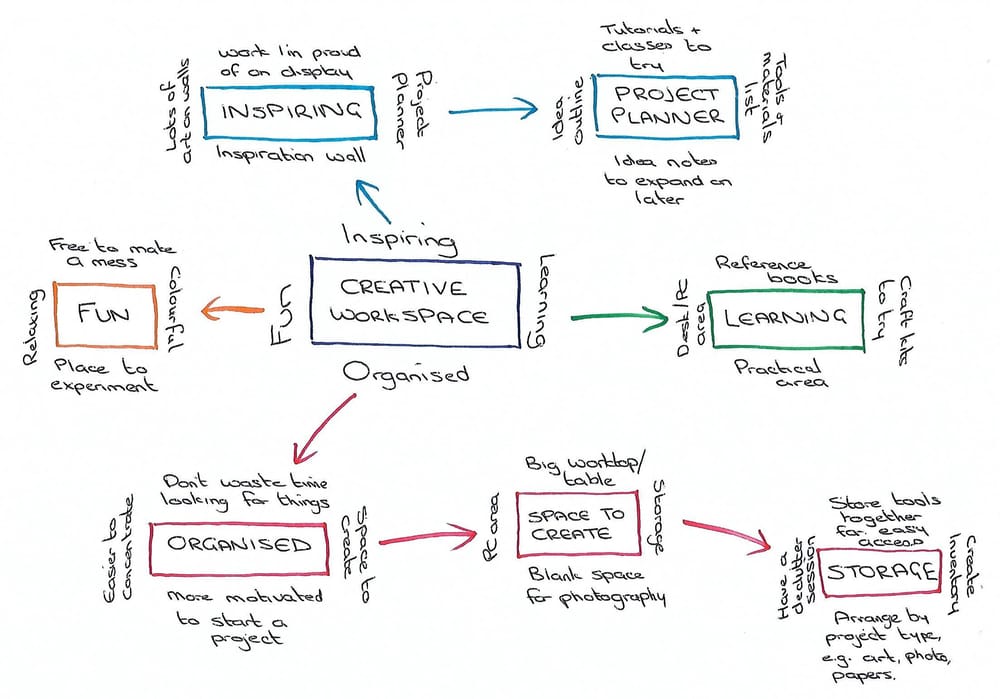 work I'm proud
of on display
Lots of
art on walls
INSPIRING
Project
Planner
Inspiration wall
Tutorials +
classes to
try
Idea
outline
PROJECT
PLANNER
Tools +
materials
list
Idea notes
to expand on
later
Inspiring
Fun
CREATIVE
WORKSPACE
Learning
Organised
Free to make
a mess
Relaxing
FUN
Colourful
Place to
experiment
Reference
books
Desk/PC
area
LEARNING
Craft kits
to try
Practical
area
Don't waste time
looking for things
Easier to
concentrate
ORGANISED
Space to
create
more motivated
to start a
project
Big worktop/
table
PC area
SPACE TO
CREATE
Storage
Blank space
for photography
Store tools
together
for easy
access
Have a
declutter
session
STORAGE
Create
Inventory
Arrange by
project type,
e.g. art, photo,
papers.